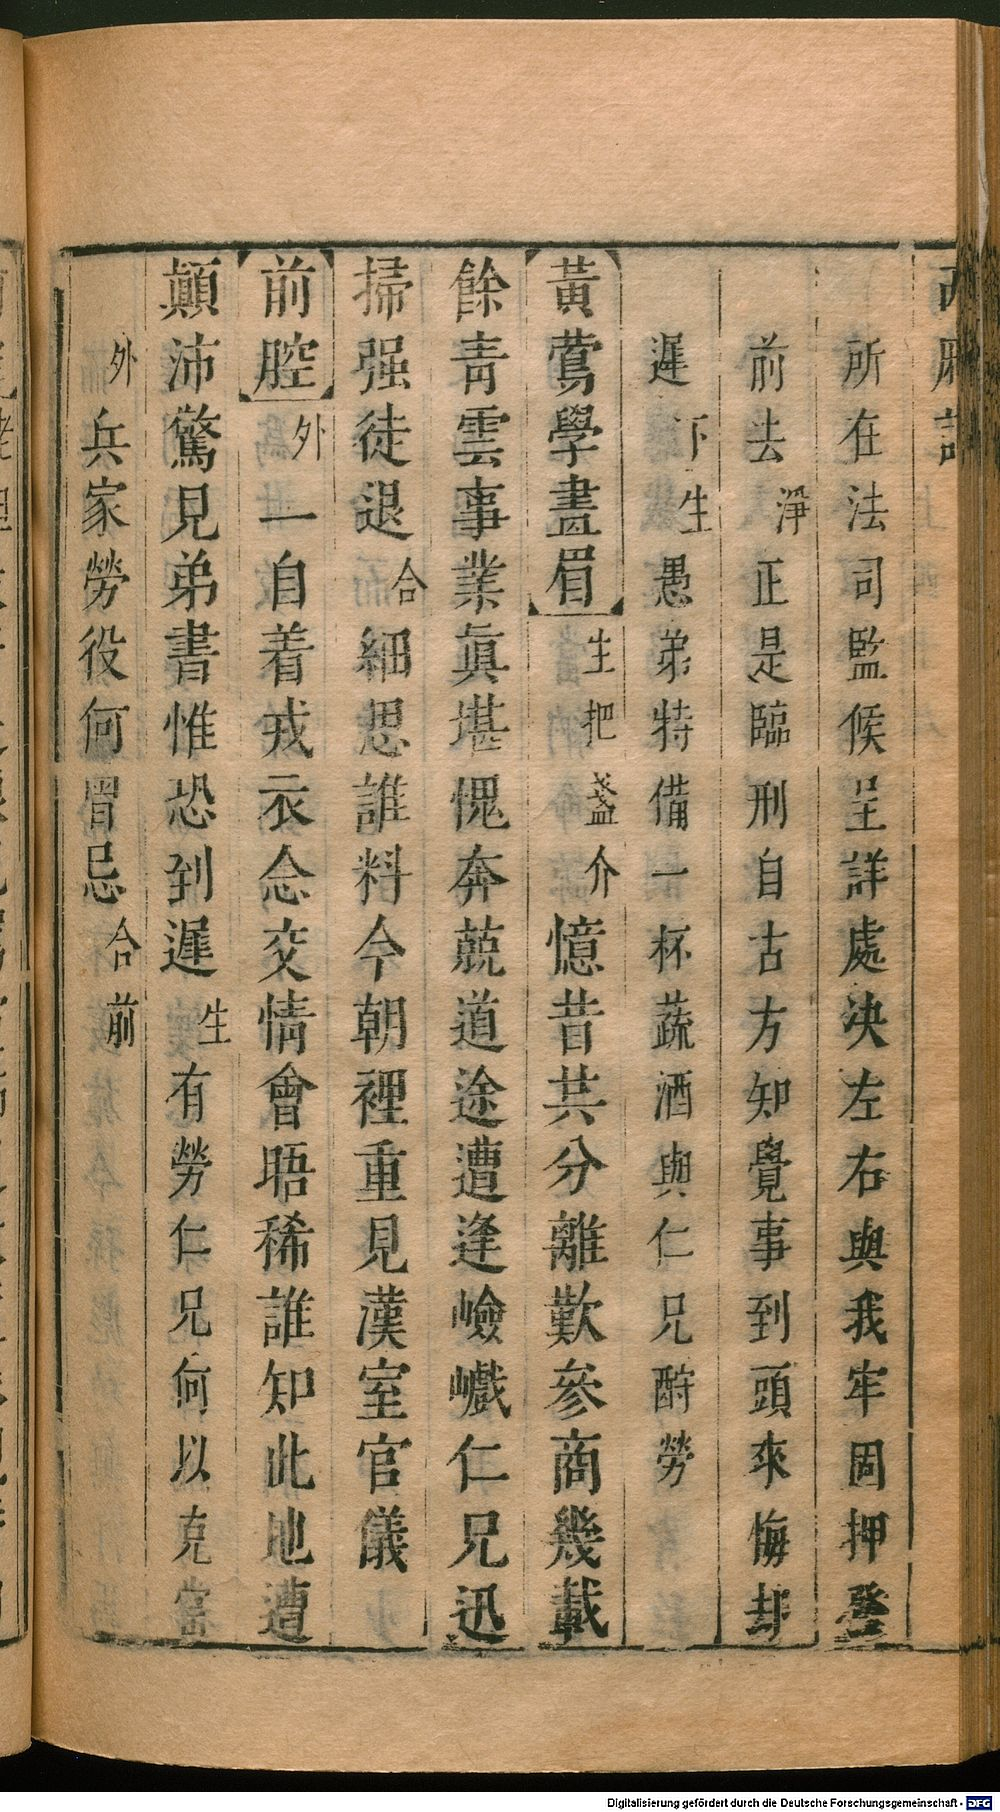 西廂記
所在法司監候呈詳處决左右與我牢固押發
前去淨正是臨刑自古方知覺事到頭來悔却
遲下生愚弟特備一杯蔬酒與仁兄酧勞
黃鶯學畫眉生把盞介憶昔共分離歎參商幾載
餘青雲事業眞堪愧奔兢道途遭逢嶮巇仁兄迅
掃强徒退合細思誰料今朝裡重見漢室官儀
前腔外一自着戎衣念交情會晤稀誰知此地遭
顛沛驚見弟書惟恐到遲生有勞仁兄何以克當
外兵家勞役何曾忌合前
Digitalisierung gefördert durch die Deutsche Forschungsgemeinschaft - DFG